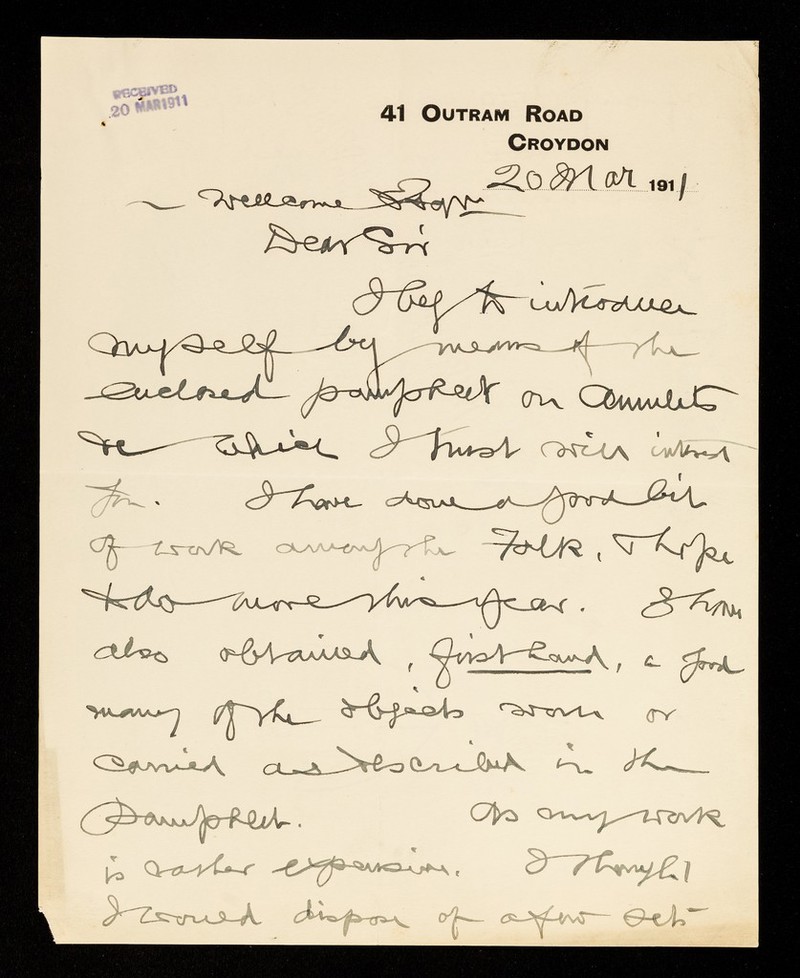 RECEIVED
20 MAR 1911
41 OUTRAM ROAD
CROYDON
20 Mar 1911
~ Wellcome Esqr
Dear Sir
I beg to introduce
myself by means of the
enclosed pamphlet on Amulets
&c which I trust will interest
you. I have done a good bit
of work among the Folk, & hope
to do more this year. I have
also obtained, first hand, a good
many of the objects worn or
carried as described in the
Pamphlet. As my work
is rather expensive, I thought
I would dispose of a few sets